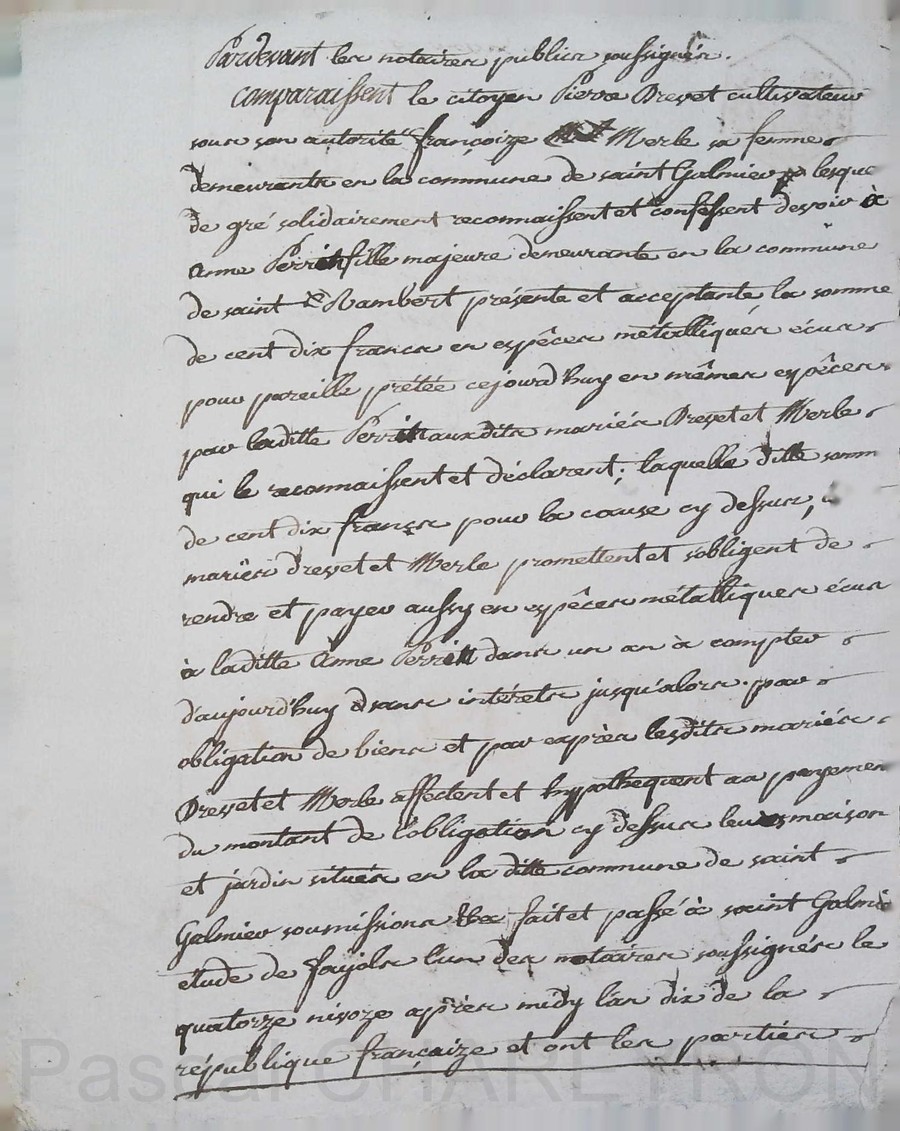 Pardevant les notaires publics soussignés.
comparaissent le citoyen Pierre Drevet cultivateur
sous son autorité françoize Merle sa femme
demeurants en la commune de saint Galmier lesque
de gré solidairement reconnaissent et confessent devoir à
anne Perrin fille majeure demeurante en la commune
de saint Rambert présente et acceptante la somme
de cent dix francs en espêces métalliqués écus
pour pareille prétée cejourd'huy en mêmes espêces
par laditte Perrin auxdits mariés Drevet et Merle
qui le reconnaissent et déclarent; laquelle ditte somm
de cent dix francs pour la cause cy dessus,
mariés drevet et Merle promettent et sobligent de
rendre et payer aussy en espêces métalliques écus
à laditte Anne Perrin dans un an à compter
d'aujourd'huy sans intérets jusqu'alors. par
obligation de biens et par exprès lesdits mariés
Drevet et Merle affectent et hypothequent au payemen
du montant de l'obligation cy dessus leurs maison
et jardin situés en la ditte commune de saint
Galmier soumissions &ca fait et passé à saint Galmie
étude de fayols l'un des notaires soussignés le
quatorze nivoze après midy l'an dix de la
république françaize et ont les partiés
Pascal CHAREYRON